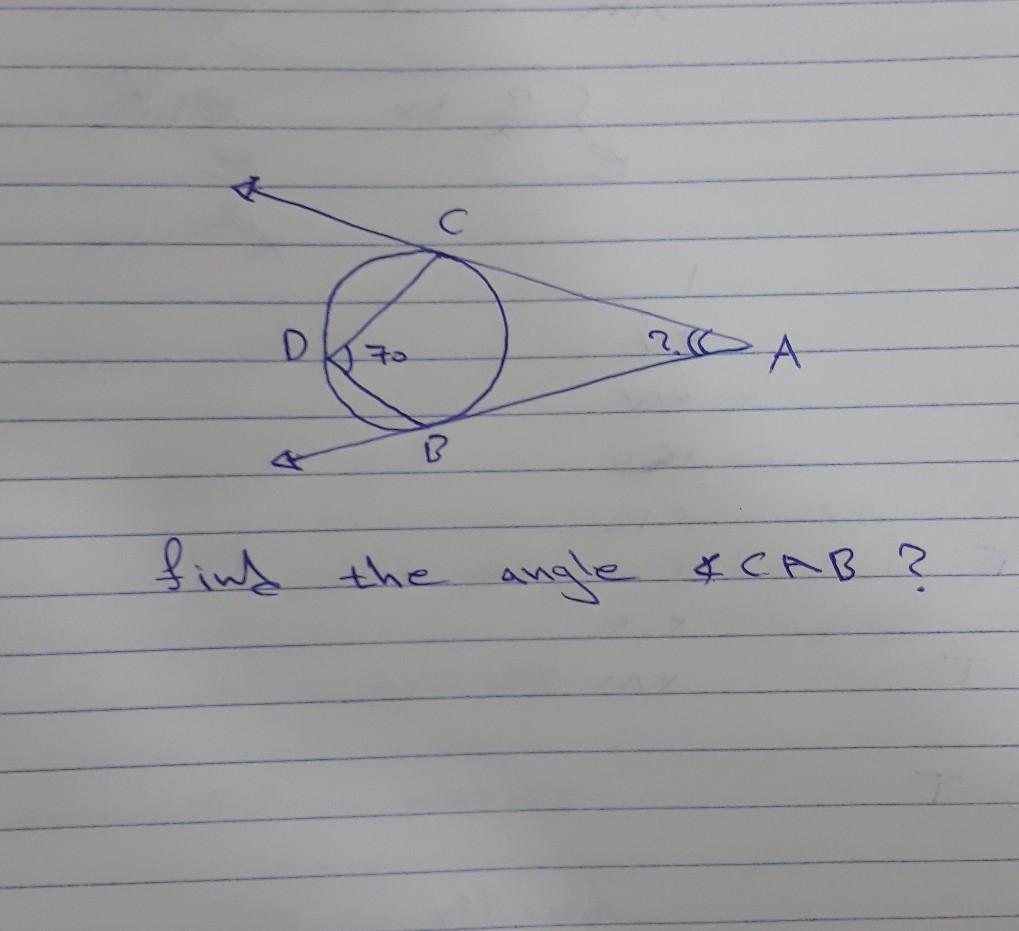 C
D
70
?
A
B
find the angle ∡CAB ?